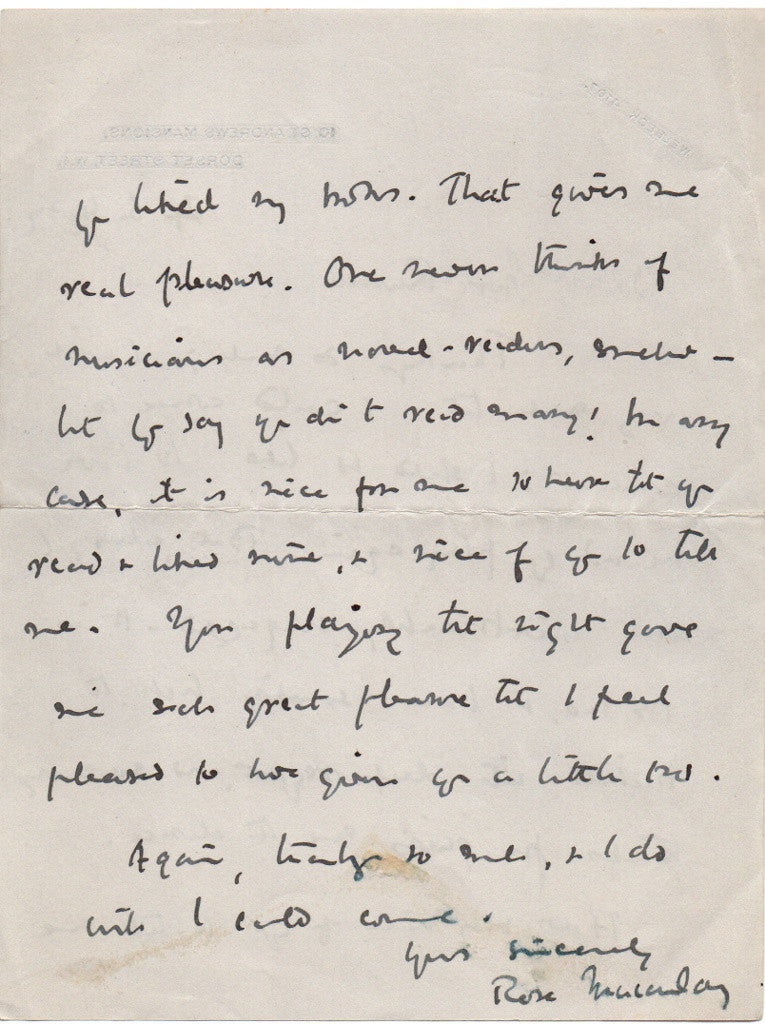 you liked my books. That gives me
real pleasure. One never thinks of
musicians as novel-readers, somehow —
but you say you don't read many! In any
case, it is nice for me to hear tt you
read & liked mine, & nice of you to tell
me. Your playing tt night gave
me such great pleasure tt I feel
pleased to have given you a little too.
Again, thank you so much, & I do
wish I could come.
Yours sincerely
Rose Macaulay
10 ST. ANDREWS MANSIONS,
DORSET STREET, W.1.
WELBECK